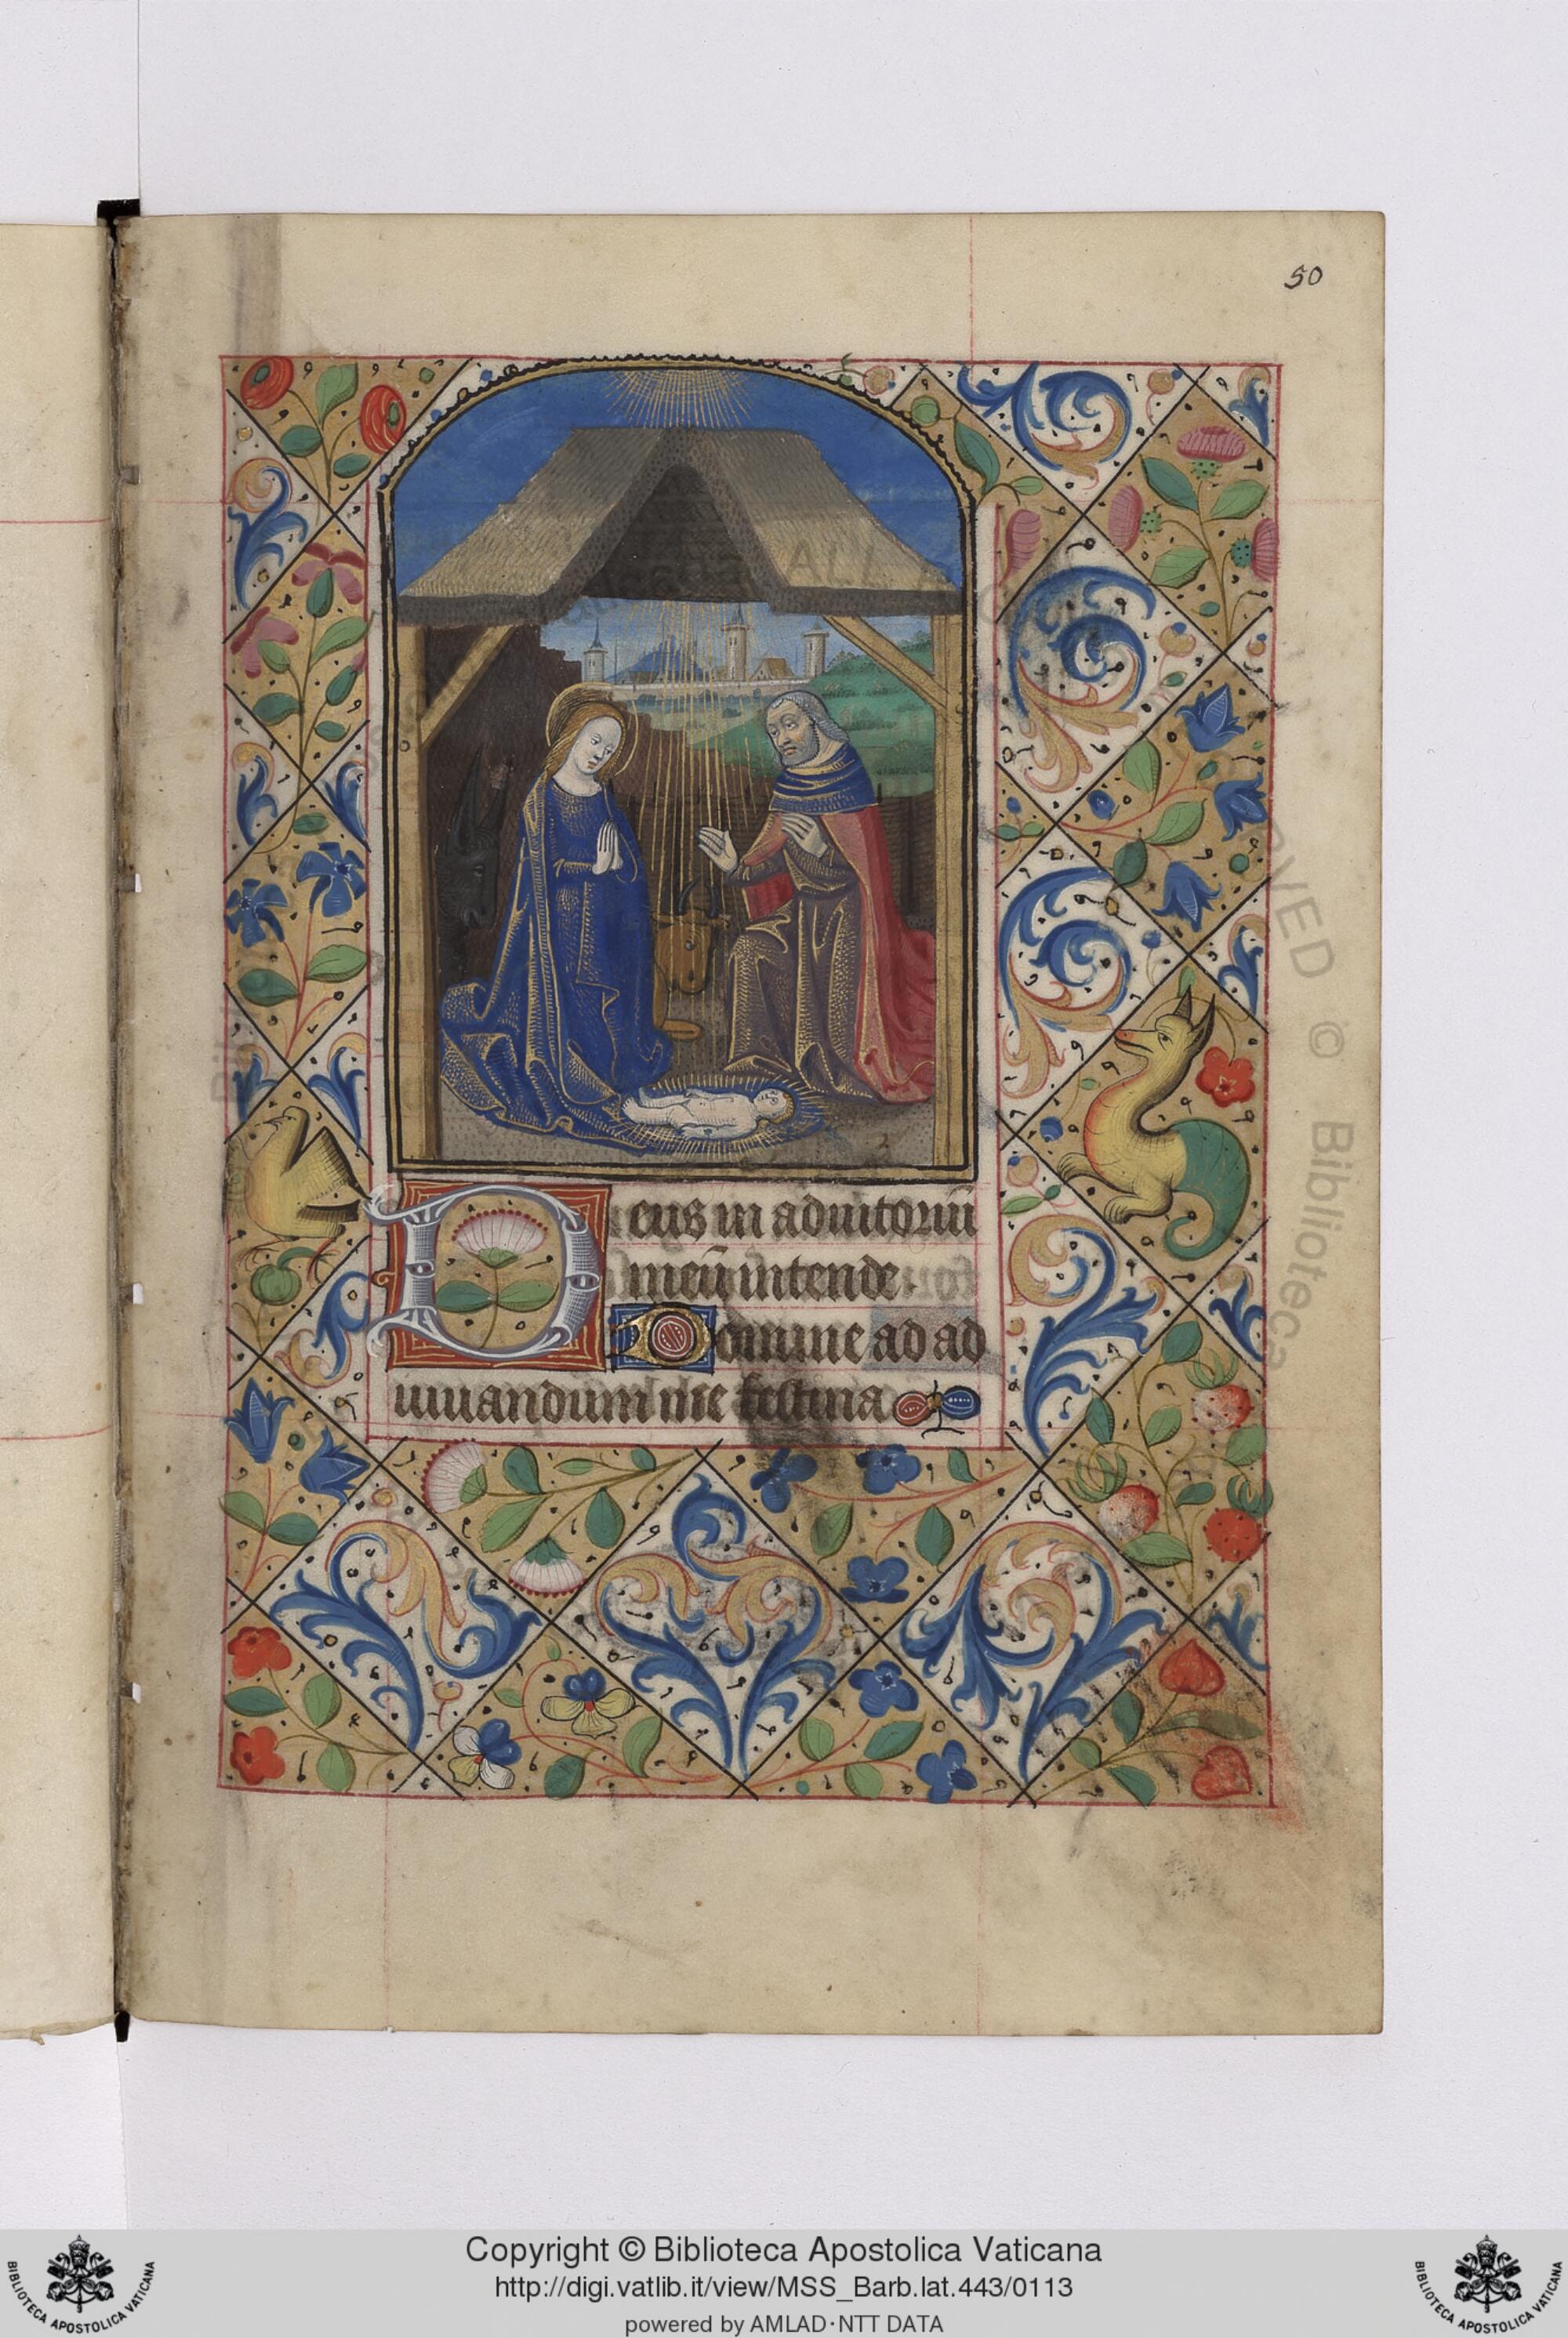 50
Deus in adiutoriū
meū intende
Domine ad ad
iuuandum me festina
Copyright © Biblioteca Apostolica Vaticana
http://digi.vatlib.it/view/MSS_Barb.lat.443/0113
powered by AMLAD·NTT DATA
BIBLIOTECA APOSTOLICA VATICANA
BIBLIOTECA APOSTOLICA VATICANA